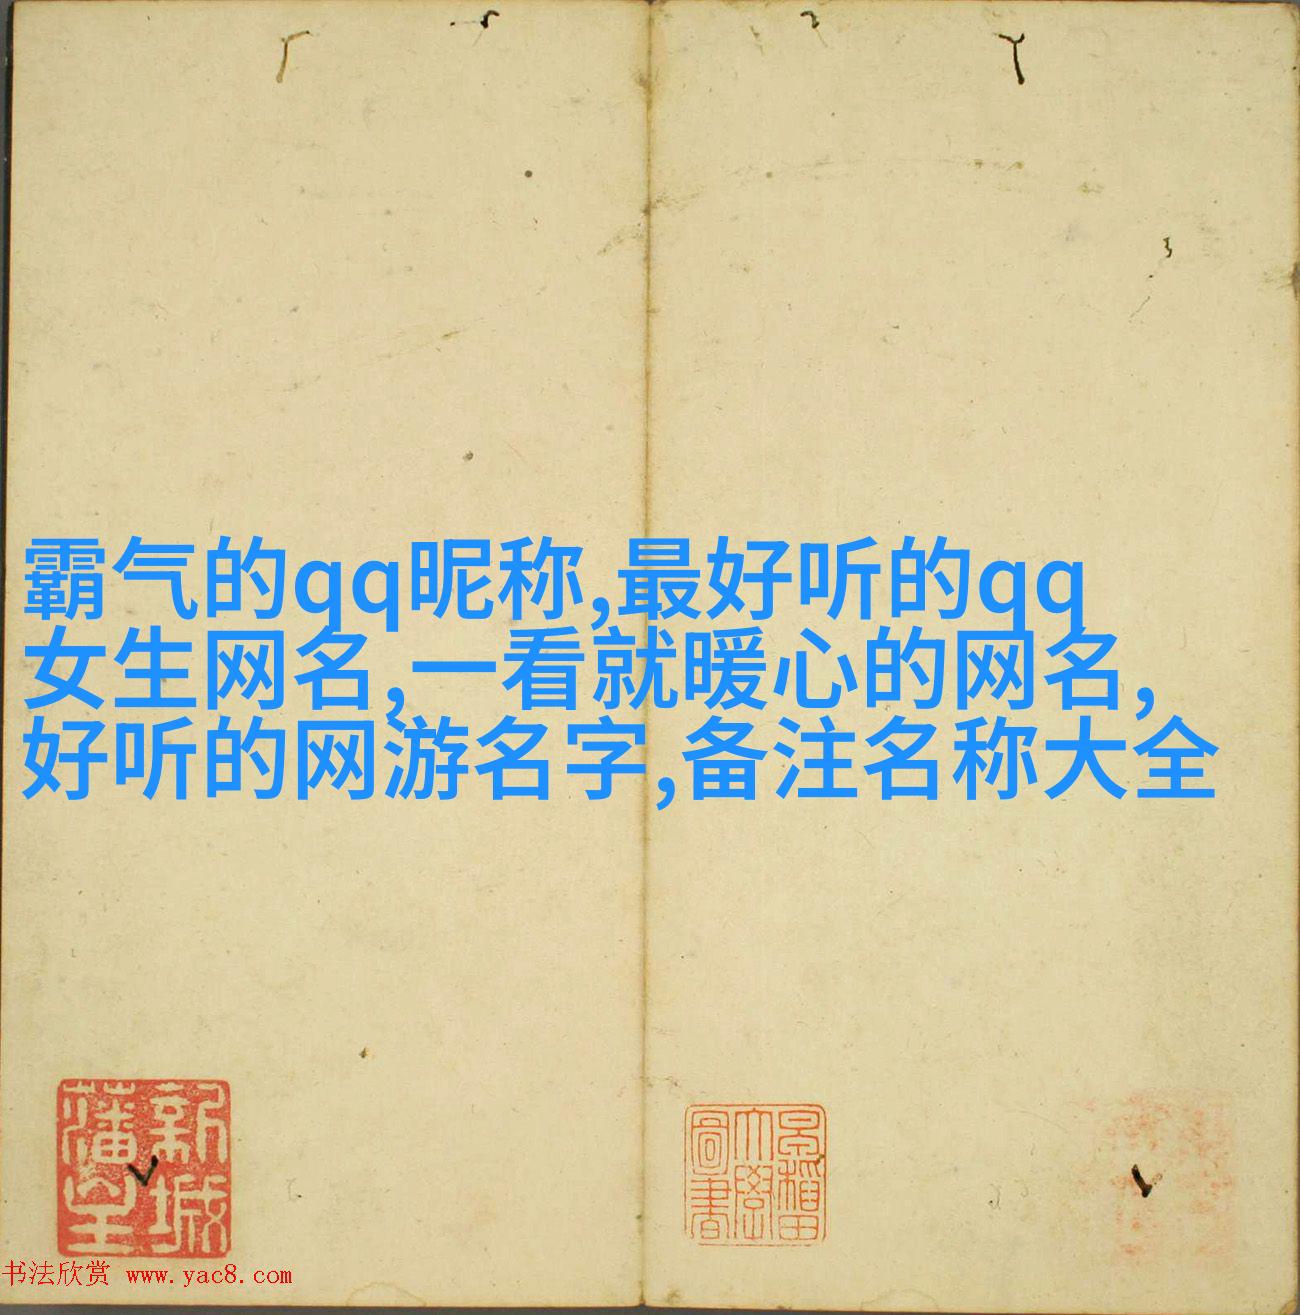 霸气的qq昵称,最好听的qq
女生网名,一看就暖心的网名,
好听的网游名字,备注名称大全
新城
藩室
早稲田
大學
圖書
书法欣赏 www.yac8.com